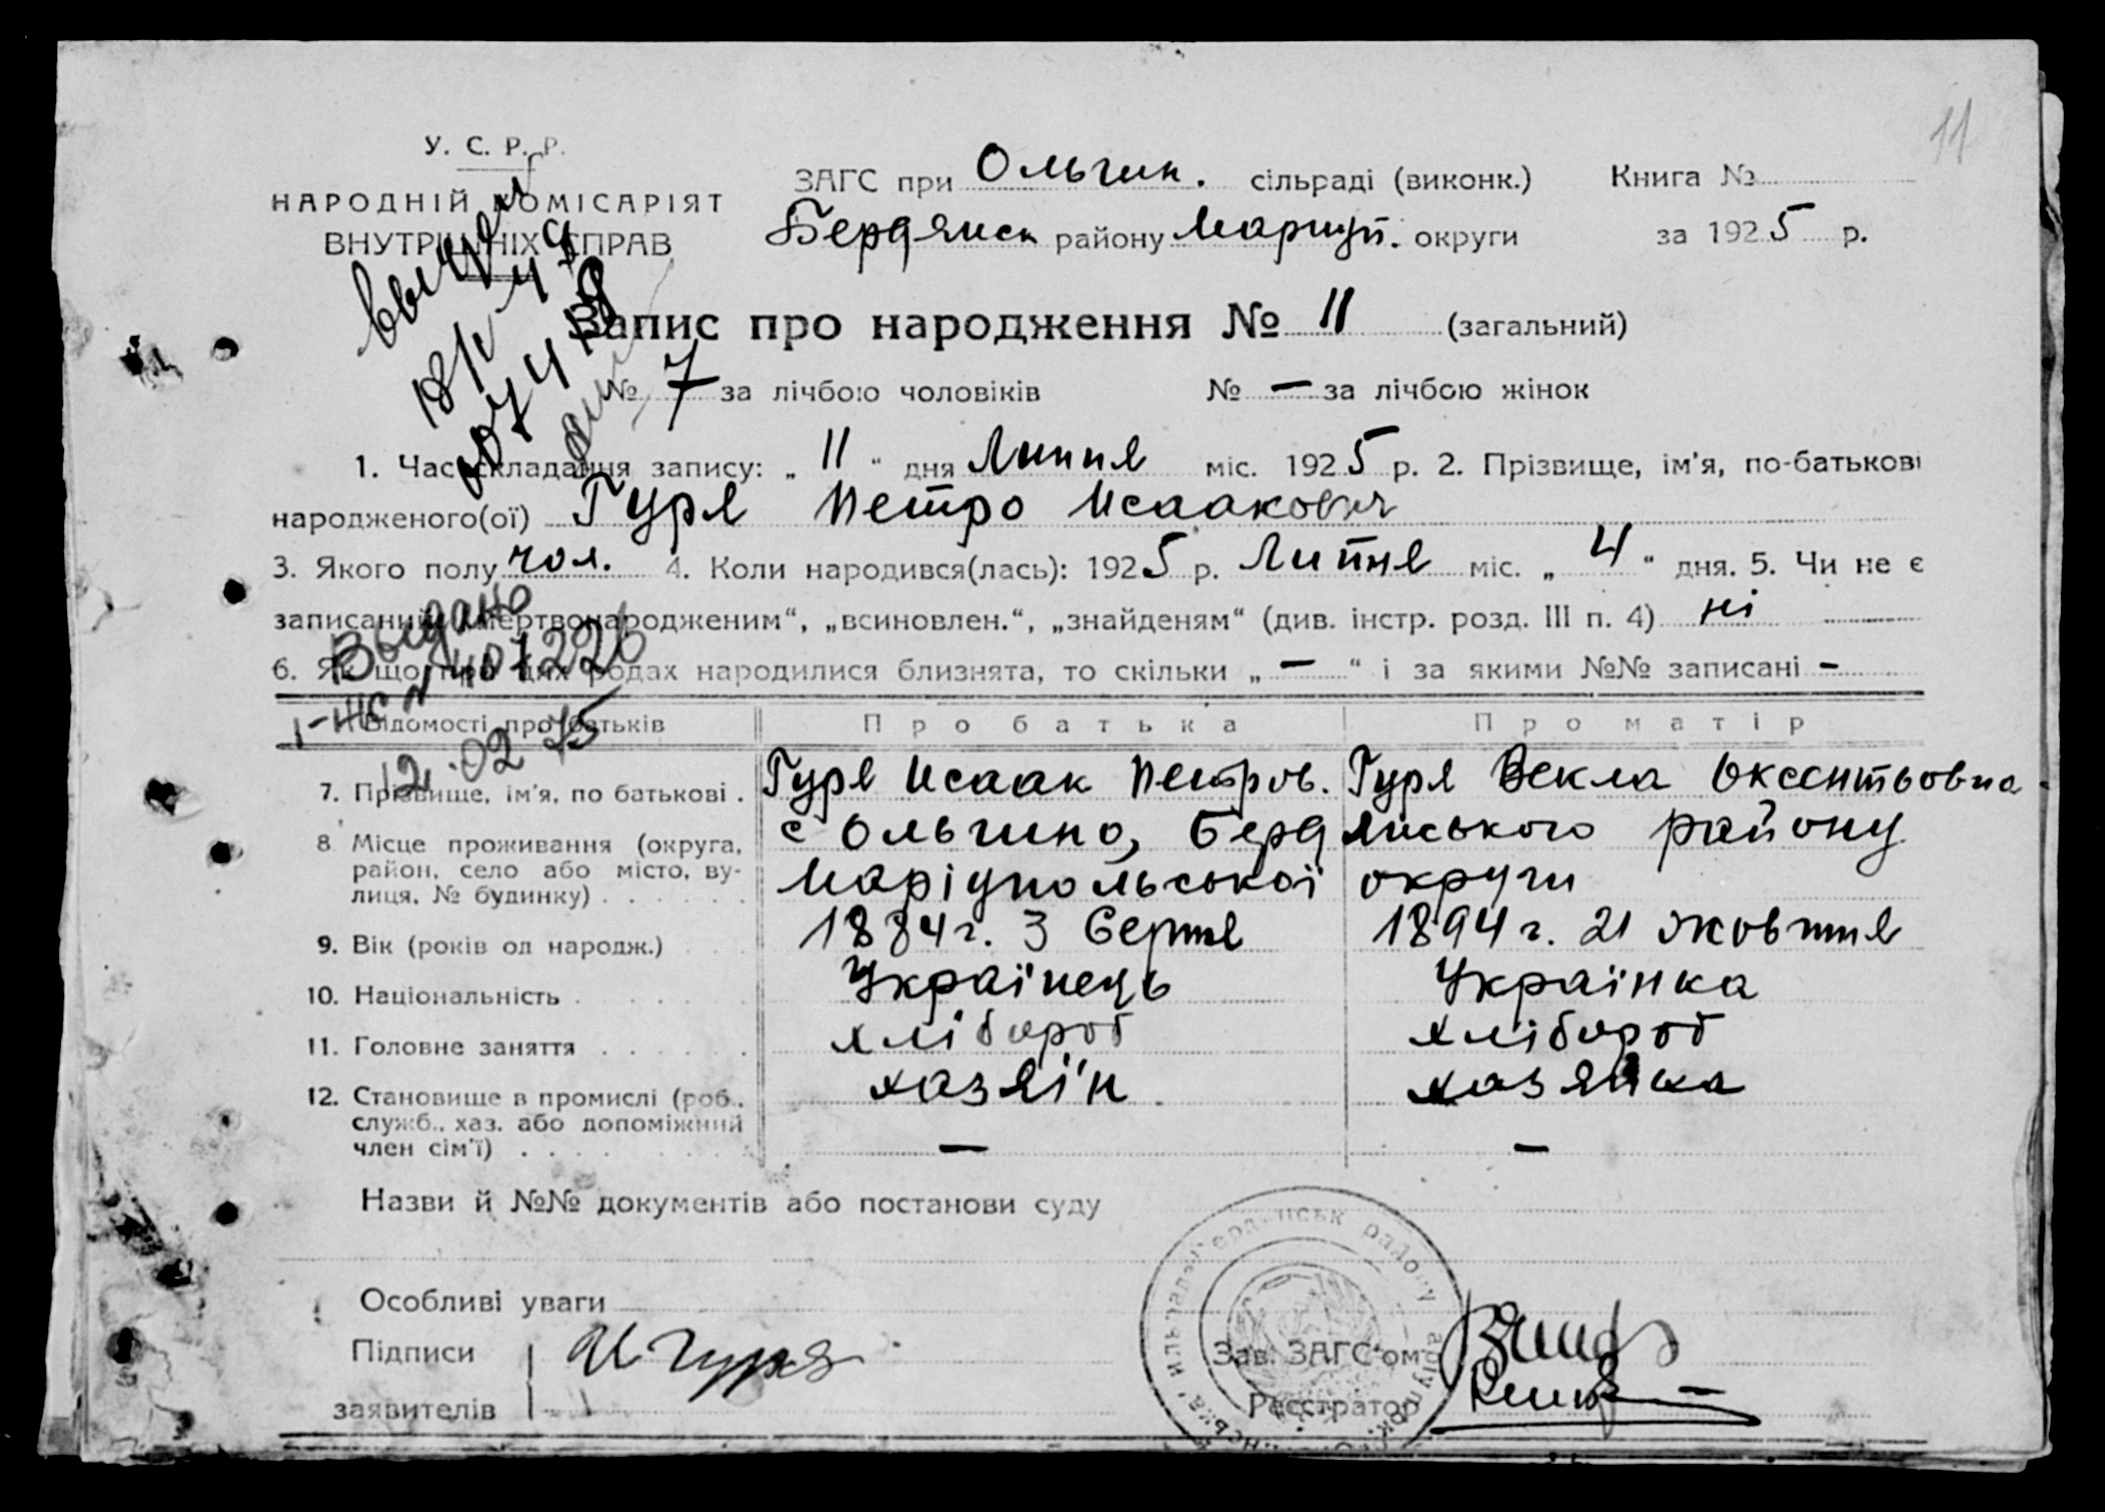 11
У. С. Р. Р.
НАРОДНІЙ КОМІСАРІЯТ
ВНУТРІШНІХ СПРАВ
ЗАГС при Ольгин. сільраді (виконк.) Книга №
Бердянск району Маріуп. округи за 1925 р.
Запис про народження № 11 (загальний)
№ 7 за лічбою чоловіків № — за лічбою жінок
1. Час складання запису: „ 11 “ дня Липня міс. 1925 р. 2. Прізвище, ім'я, по-батькові
народженого(ої) Гуря Петро Исаакович
3. Якого полу чол. 4. Коли народився(лась): 1925 р. Липня міс. „ 4 “ дня. 5. Чи не є
записаний „мертвонародженим“, „всиновлен.“, „знайденям“ (див. інстр. розд. III п. 4) ні
6. Якщо при цих родах народилися близнята, то скільки „ — “ і за якими №№ записані —
Выдано
I-ЖС № 407226
12.02 75
Відомості про батьків Про батька Про матір
7. Прізвище, ім'я, по батькові . Гуря Исаак Петров. Гуря Векла Оксентьовна
8. Місце проживання (округа, район, село або місто, вулиця, № будинку) . . . . . . с Ольгино, Бердянського району
Маріупольської округи
9. Вік (років од народж.) 1884г. 3 Серпня 1894 г. 21 жовтня
10. Національність . Українець Українка
11. Головне заняття . . . . . . хлібороб хлібороб
12. Становище в промислі (роб., служб., хаз. або допоміжний член сім'ї) . . . . хазяїн хазяйка
— —
Назви й №№ документів або постанови суду
Особливі уваги
Підписи заявителів И Гуря
Зав. ЗАГС'ом
Реєстратор